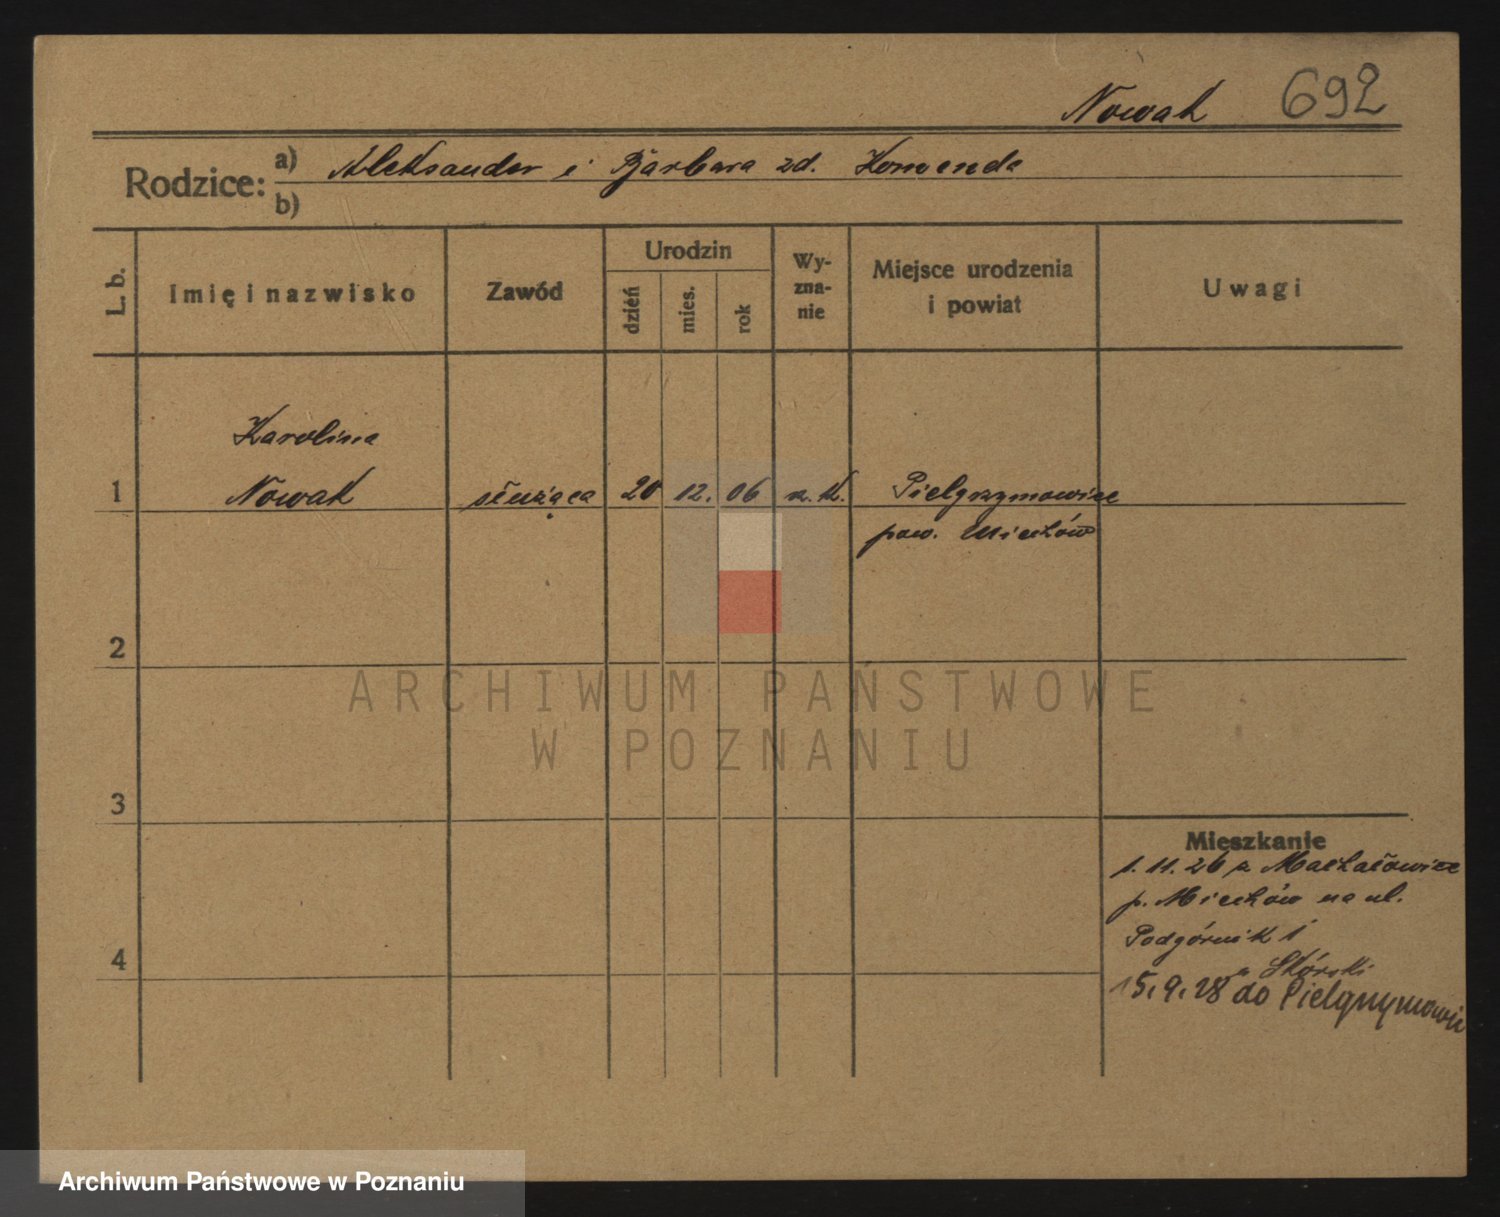 Nowak 692
Rodzice: a) Aleksander i Barbara zd. Komenda
b)
L. b.
Imię i nazwisko
Zawód
Urodzin
dzień
mies.
rok
Wy-
zna-
nie
Miejsce urodzenia
i powiat
Uwagi
Karolina
1 Nowak służąca 20 12. 06 r. k. Pielgrzymowice
pow. Miechów
2
ARCHIWUM PAŃSTWOWE
W POZNANIU
3
Mieszkanie
1. 11. 26 z Machałowice
p. Miechów na ul.
Podgórnik 1
4
u Skórski
15. 9. 28 do Pielgrzymowic
Archiwum Państwowe w Poznaniu